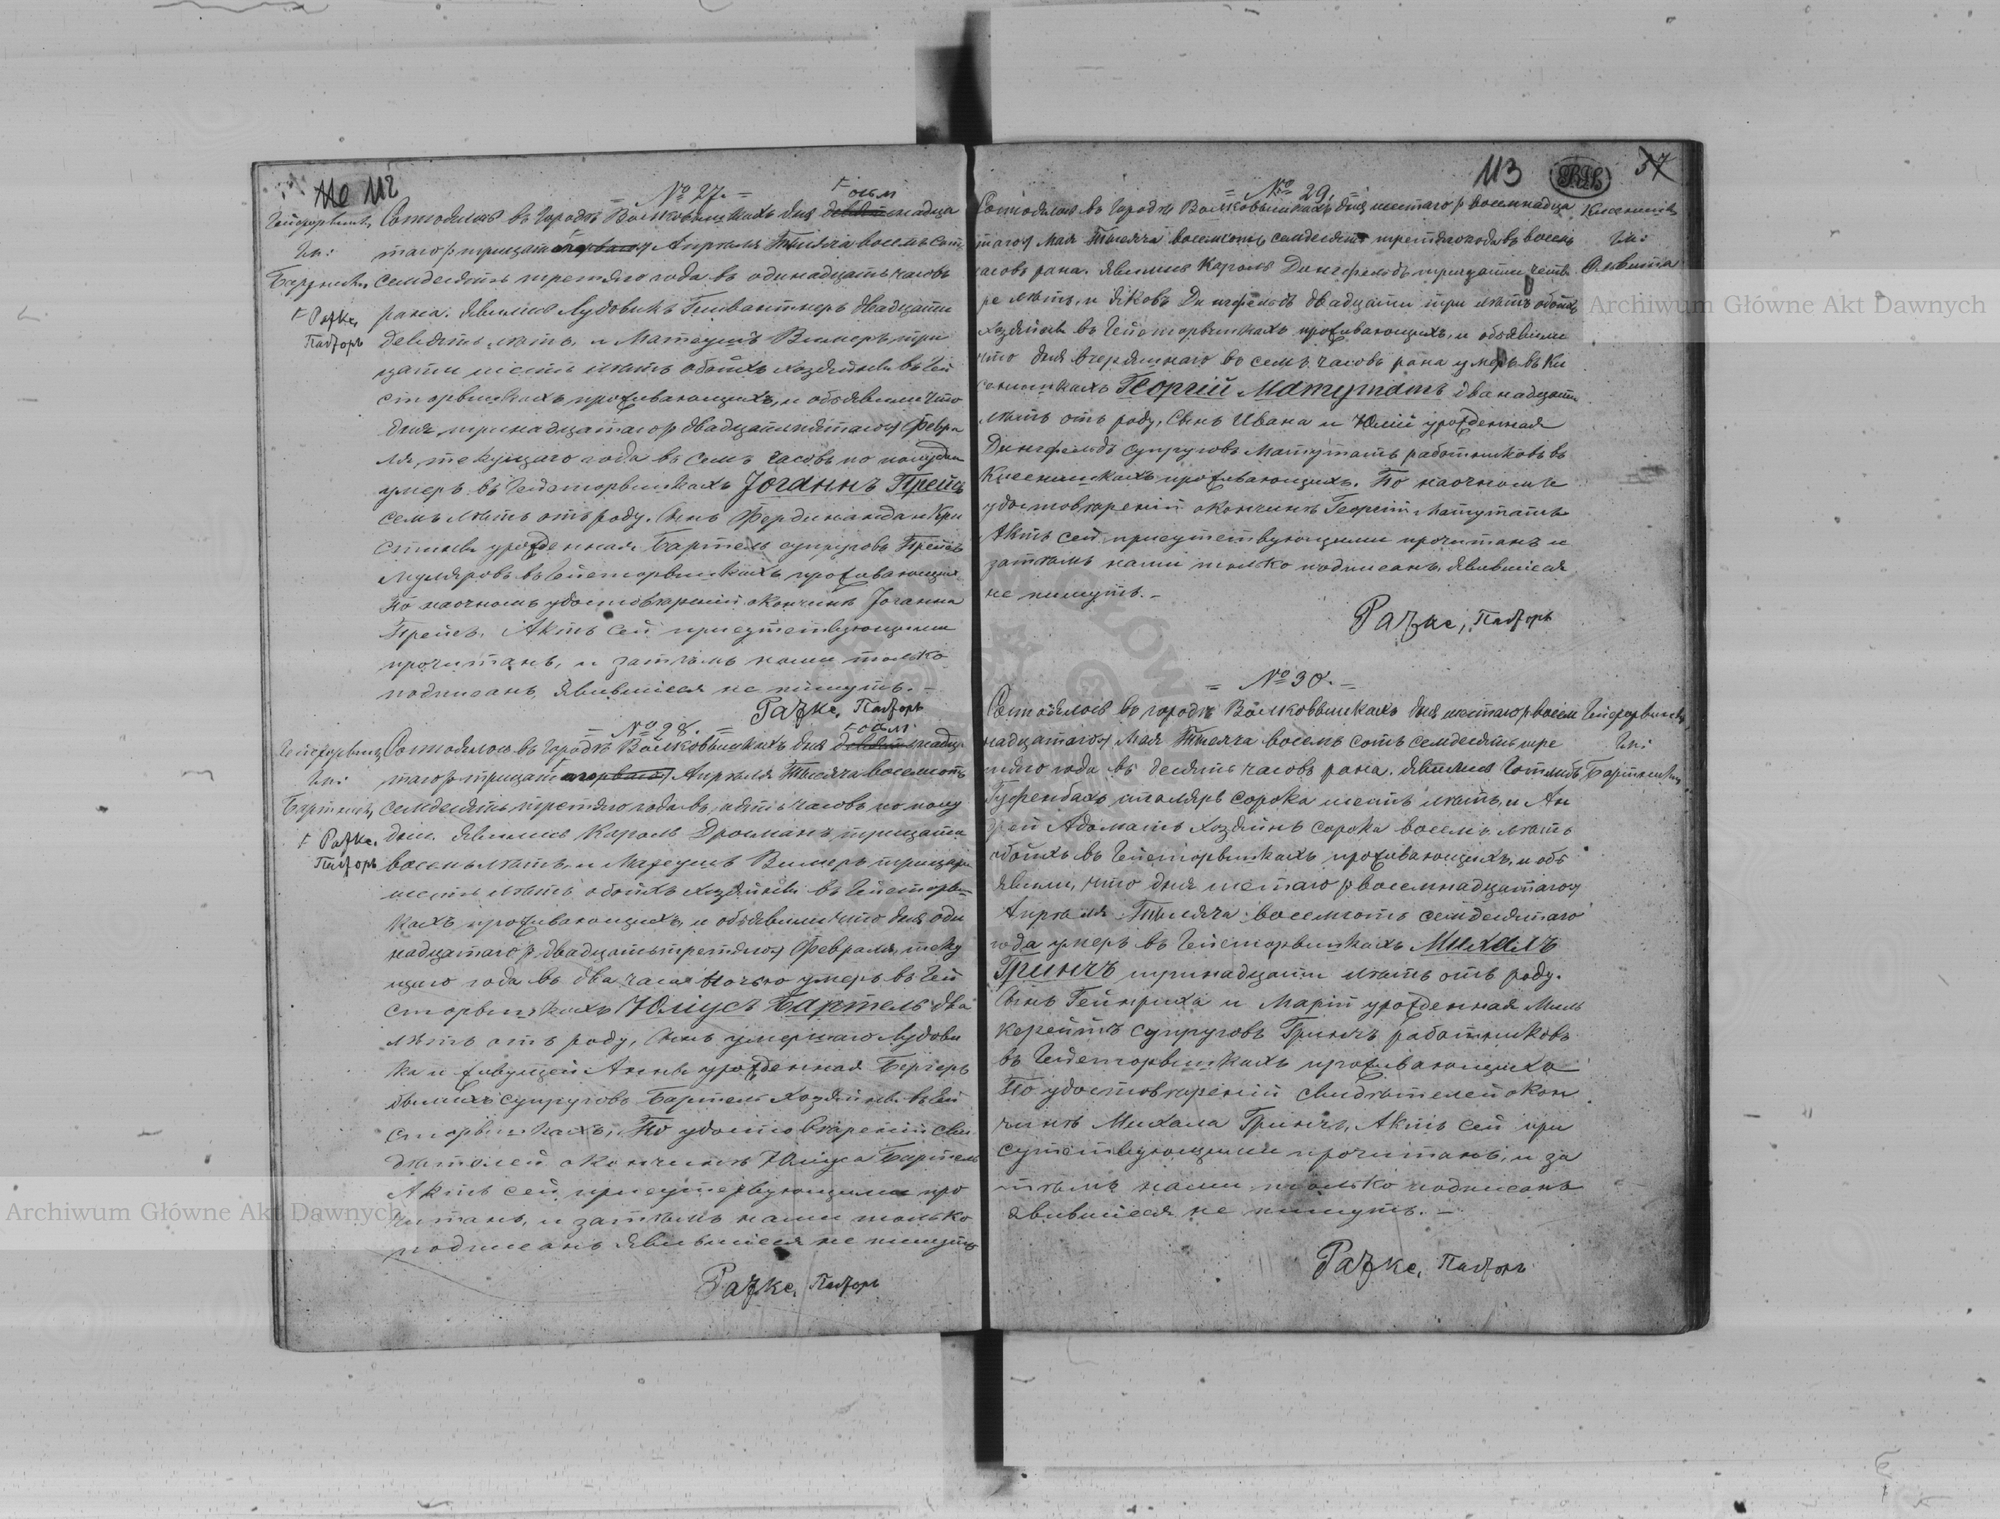 112
№ 27.
осьм
Состоялось въ городѣ Волковышкахъ дня девятнадца
таго /: тридцать перваго :/ Апрѣля Тысяча восемь сотъ
Рацке,
Пасторъ
семдесятъ третяго года въ одинадцать часовъ
рана. Явились Лудовикъ двадцати
девять лѣтъ, и Матеушъ Вимеръ три
цати шести лѣтъ обоихъ хозяиновъ въ Гей
сторвишкахъ проживающихъ, и объявили что
дня тринадцатаго /: двадцатипятаго :/ Февра
ля текущаго года въ семъ часовъ по полудни
умеръ въ Гейсторвишкахъ Јоганнъ Прейсъ
семь лѣтъ отъ роду, сынъ Фердинанда и Кри
стины урожденная Бартель супруговъ Прейсъ
въ Гейсторвишкахъ проживающихъ.
По наочномъ удостовѣреніи о кончинѣ Јоганна
Прейсъ, Актъ сей присутствующими
прочитанъ, и затѣмъ нами только
подписанъ, явившіеся не пишутъ. –
Рацке, Пасторъ
№ 28.
осьм
Состоялось въ городѣ Волковышкахъ дня девятнадца
таго /: тридцать перваго :/ Апрѣля Тысяча восемсотъ
семдесятъ третяго года въ пять часовъ по полу
Рацке,
Пасторъ
дни. Явились Кароль тридцати
восемь лѣтъ, и Матеушъ Вимеръ тридцати
шести лѣтъ обоихъ хозяиновъ въ Гейсторвиш
кахъ проживающихъ, и объявили что дня оди
надцатаго /: двадцатьтретяго :/ Февраля теку
щаго года въ два часа ночью умеръ въ Гей
сторвишкахъ Юліусъ Бартель два
лѣтъ отъ роду, сынъ умершаго Лудови
ка и живущей Анны урожденная Бергеръ
бывшихъ супруговъ Бартель хозяиновъ въ Гей
сторвишкахъ. По удостовѣреніи сви
дѣтелей о кончинѣ Юліуса Бартель
Актъ сей присутствующими про
читанъ, и затѣмъ нами только
подписанъ явившіеся не пишутъ
Рацке, Пасторъ
113
57
№ 29.
Состоялось въ городѣ Волковышкахъ дня шестаго /: восемнадца
таго :/ Мая Тысяча восемсотъ семдесятъ третяго года въ восемь
часовъ рана. Явились Кароль Дингфельдъ тридцати четы
ре лѣтъ, и Яковъ Дингфельдъ двадцати три лѣтъ обоихъ
хозяиновъ въ Гейсторвишкахъ проживающихъ, и объявили
что дня вчерашнаго въ семь часовъ рана умеръ въ Ки
Георгій Матутатъ дванадцать
лѣтъ отъ роду, сынъ Ивана и Юліи урожденная
Дингфельдъ супруговъ Матутатъ работниковъ въ
проживающихъ. По наочномъ
удостовѣреніи о кончинѣ Георгій Матутатъ
Актъ сей присутствующими прочитанъ и
затѣмъ нами только подписанъ, явившіеся
не пишутъ. –
Рацке, Пасторъ
№ 30.
Состоялось въ городѣ Волковышкахъ дня шестаго /: восем
надцатаго :/ Мая Тысяча восемь сотъ семдесятъ тре
тяго года въ десять часовъ рана. Явились Готлибъ
столяръ сорока шесть лѣтъ, и Ан
дрей Адоматъ хозяинъ сорока восемь лѣтъ
обоихъ въ Гейсторвишкахъ проживающихъ, и объ
явили, что дня шестаго /: восемнадцатаго :/
Апрѣля Тысяча восемсотъ семдесятаго
года умеръ въ Гейсторвишкахъ Михалъ
Гринчъ тринадцати лѣтъ отъ роду.
Сынъ Гейнриха и Маріи урожденная Миль
керейтъ супруговъ Гринчъ работниковъ
въ Гейсторвишкахъ проживающихъ
По удостовѣреніи свидѣтелей о кон
чинѣ Михала Гринчъ, Актъ сей при
сутствующими прочитанъ, и за
тѣмъ нами только подписанъ
явившіеся не пишутъ. –
Рацке, Пасторъ
Archiwum Główne Akt Dawnych
Archiwum Główne Akt Dawnych